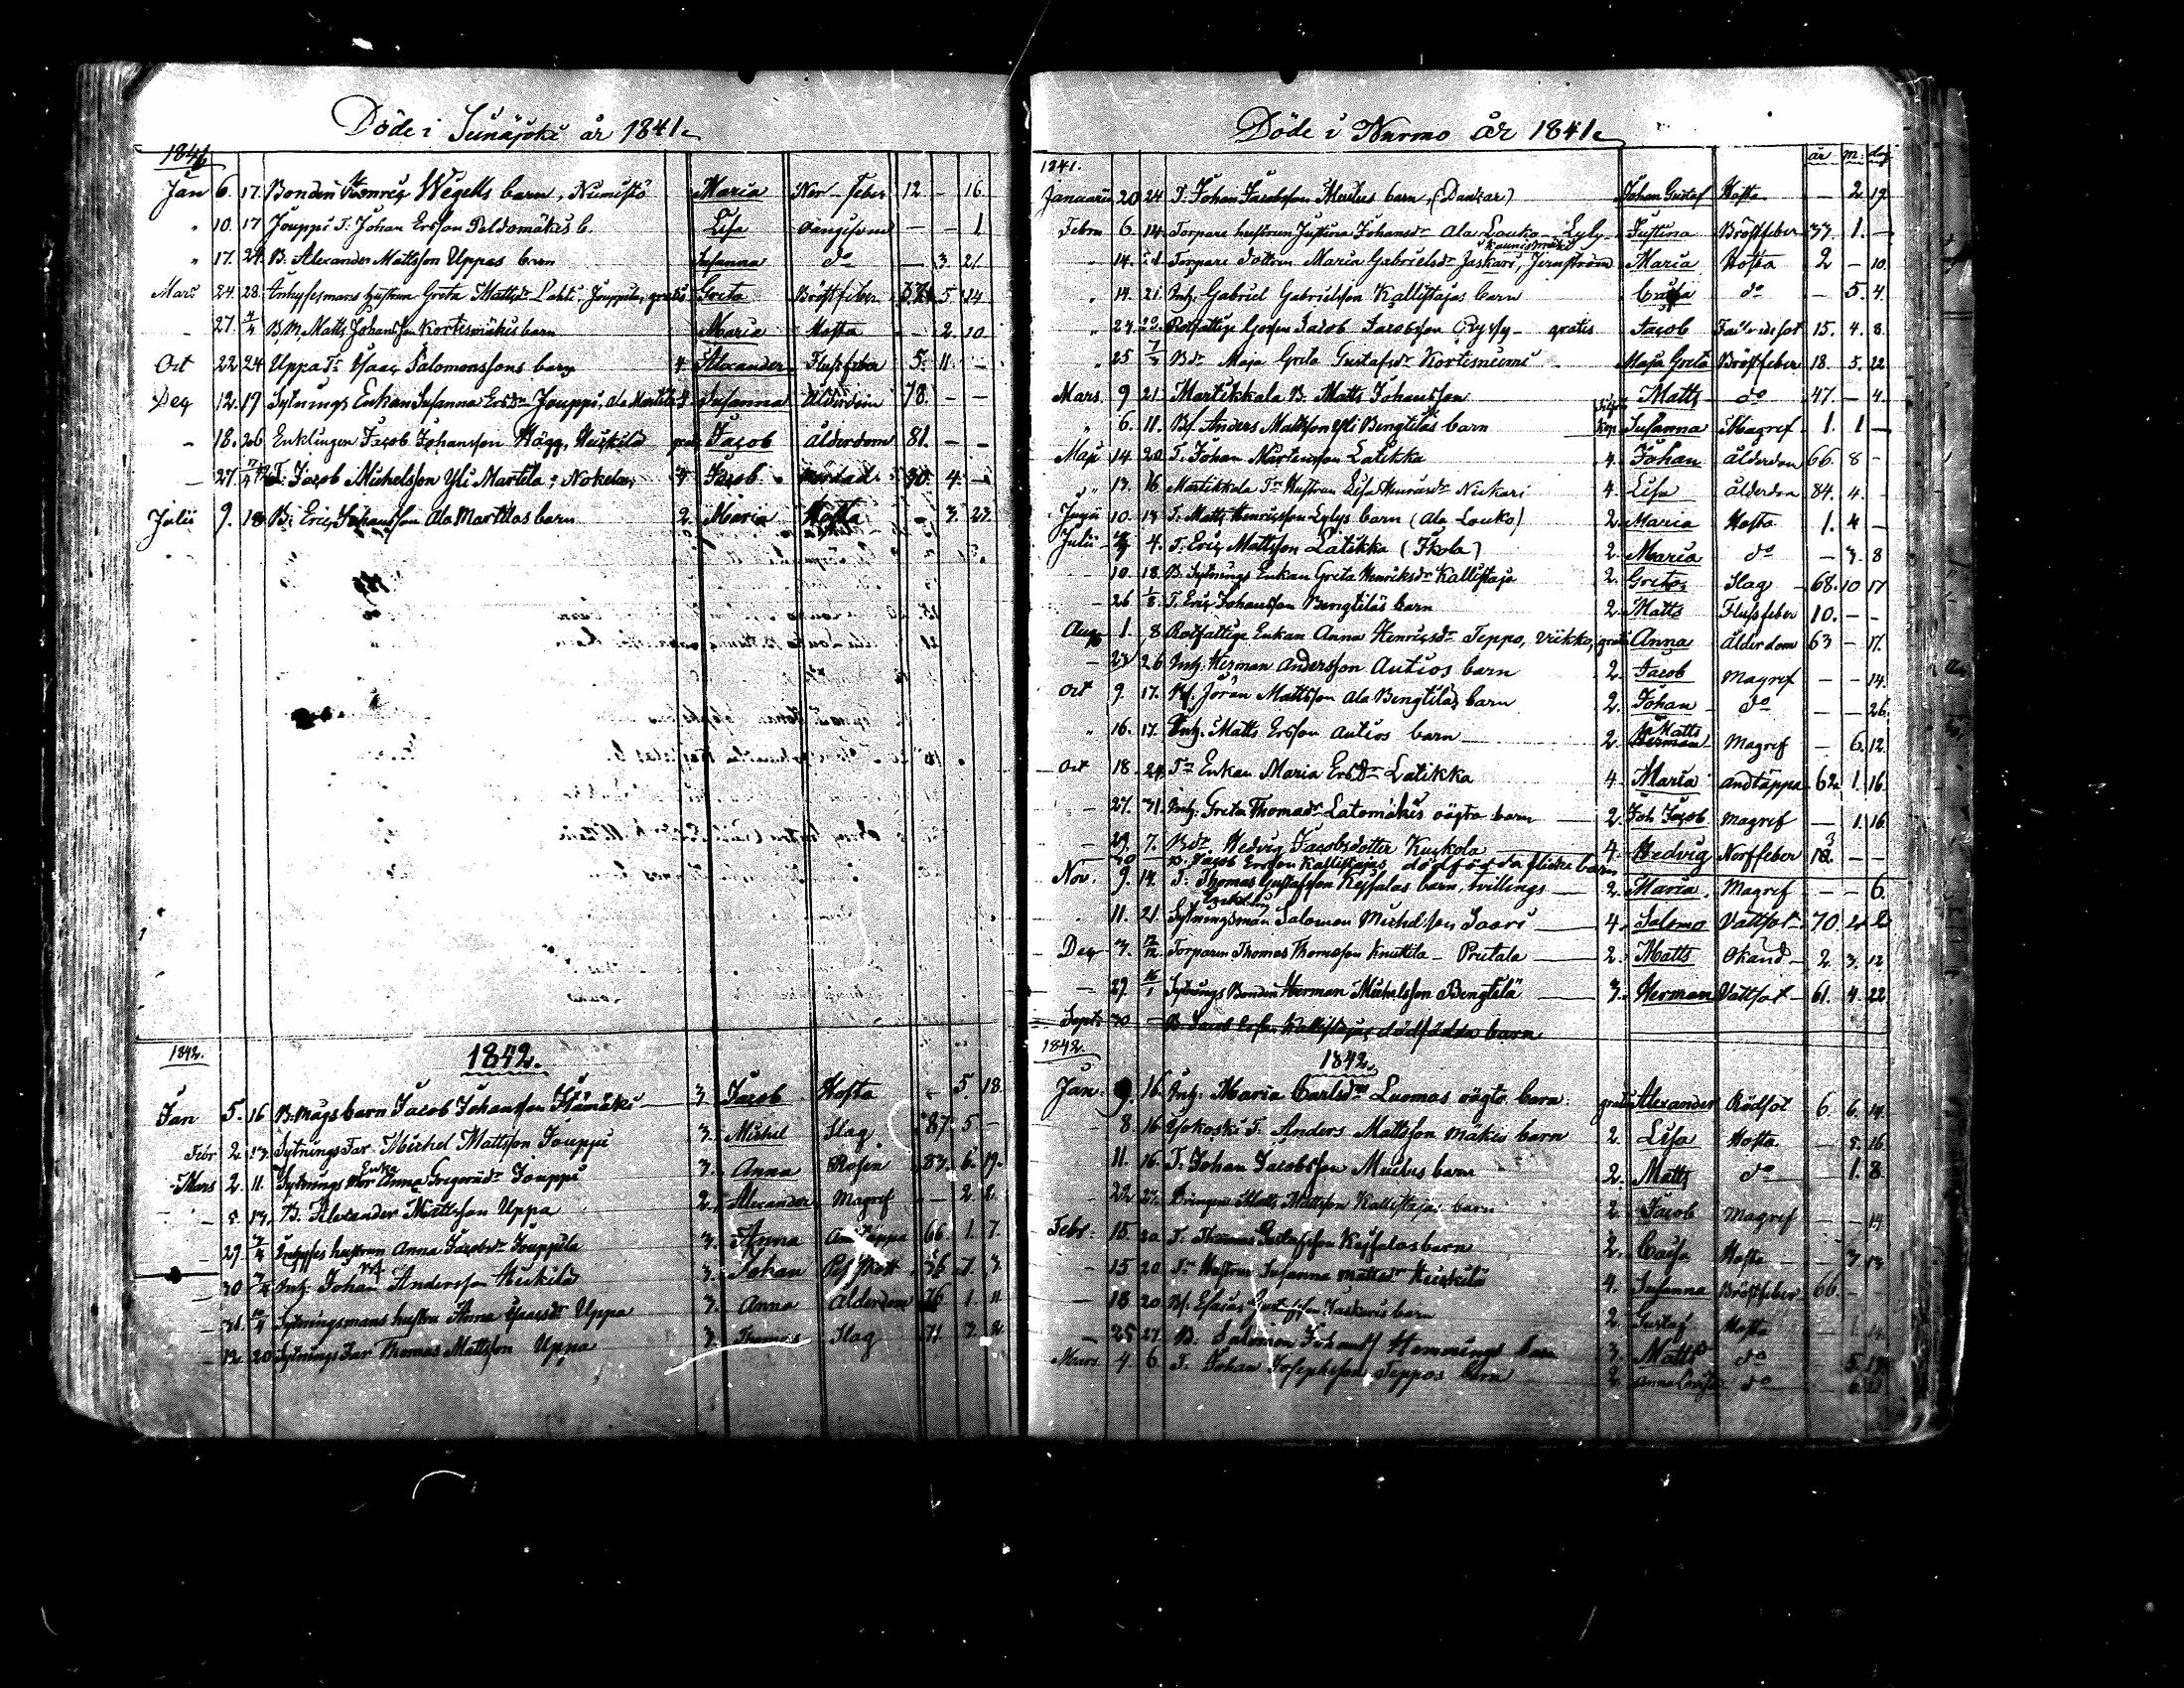 Döde i Seinäjoki år 1841.
1841
Jan 6. 17. Bonden Henric Wegells barn, Niemistö Maria Nerv-feber 12 – 16
" 10. 17 Jouppi T. Johan Ersson Peldomäkis b. Lisa – – 1.
" 17. 24. B. Alexander Mattsson Uppas barn Susanna do — 3 21
Mars 24. 28. Inhysesmans hustrun Greta Mattsdr Lahti Jouppila, gratis Greta Bröstfeber 5. 14
– 27. 4/4 Matts Johansson Kortesmäkis barn Maria Hosta – 2. 10
Oct 22 24 Uppa Tr Isaac Salomonssons barn 4. Alexander Flussfeber 5. 11. –
Dec 12. 19 Sytnings Enkan Susanna Ersdr Jouppi, Ala Martila Susanna Ålderdom 78. – –
– 18. 26 Enklingen Jacob Johansson Hägg, Huckila Jacob Ålderdom 81. – –
– 27. T. Jacob Michelsson Yli Martila, Nokela 4 Jacob 30. 4. –
Julii 9. 18 B. Eric Johansson Ala Martilas barn 2. Maria Hosta 3. 23
1842. 1842.
Jan 5. 16 B. mågs barn Jacob Johansson 3 Jacob Hosta – 5. 18.
Febr 2. 13. Sytnings Far Michel Mattsson Jouppi 3. Michel Slag 87. 5 –
Mars 2. 11. Sytnings Mor Enka Anna Gregersdr Jouppi 3. Anna Rosen 83. 6. 19.
– 5. 13. B. Alexander Mattsson Uppa 2. Alexander Magref – 2. 2.
– 29 hustrun Anna Jacobsdr Jouppila 3. Anna Andtäppa 66. 1. 7.
– 30 Inh. Johan Andersson Huckila 3. Johan 56. 7. 3.
– 31. Sytningsmans hustru Anna Isacsdr Uppa 3. Anna Ålderdom 76 1. 11
– 12. 20 Sytnings Far Thomas Mattsson Uppa 3. Thomas Slag 71. 3. 2.
Döde i Nurmo år 1841.
1841. år m: dag
Januarii 20 24 T. Johan Jacobsson Muctus barn, (Dankar) Johan Gustaf Hosta – 2 19.
Febru 6. 14. Torpare hustrun Justina Johansdr Ala Louko – Lyly Justina Bröstfeber 37. 1. –
Kaunismäki
" 14. 21 Torpare dottren Maria Gabrielsdr Jaskari, Jernström Maria Hosta 2 – 10.
" 14. 21. Inh. Gabriel Gabrielsson Kallistajas barn Caisa do – 5. 4.
" 24. Rotfattige Gossen Jacob Jacobsson gratis Jacob 15. 4. 8.
" 25 7/3 Bdr Maja Greta Gustafsdr Kortesniemi Maja Greta Bröstfeber 18. 5. 22
Mars. 9 21. Martikkala B. Matts Johansson Matts do 47. – 4.
" 6. 11. Bf. Anders Mattsson Yli Bengtiläs barn Susanna Magref. 1. 1 –
Maji 14 20 T. Johan Mårtensson Latikka 4. Johan Ålderdom 66. 8 –
" 13. 16 Martikkala Tr Hustrun Lisa Henricsdr Niekari 4. Lisa Ålderdom 84. 4. –
Junii 10. 13 T. Matts Henricsson Lylys barn (Ala Louko) 2. Maria Hosta 1. 4 –
Julii 4. T. Eric Mattsson Latikka (Ikola) 2. Maria do – 3. 8
– 10. 18. B. Sytnings Enkan Greta Henriksdr Kallistaja 2. Greta Slag 68. 10 17
– 26 1/8 T. Eric Johansson Bengtiläs barn 2. Matts Flussfeber 10. – –
Aug 1. 8 Rotfattige Enkan Anna Henricsdr Teppo, Viikko, gratis Anna Ålderdom 63 – 17.
– 23 26 Inh. Herman Andersson Autios barn 2. Jacob Magref – – 14.
Oct 9. 17. Bf. Jöran Mattsson Ala Bengtiläs barn 2. Johan do – – 26.
" 16. 17. Inh. Matts Ersson Autios barn 2. Matts Herman Magref – 6. 12.
Oct 18. 24. Tr Enkan Maria Ersdr Latikka 4. Maria andtäppa 62. 1. 16.
– 27. 31. Inh. Greta Thomasdr Latomäkis oägta barn 2. Joh Jacob Magref – 1. 16.
– 29. 7. Bdr Hedvig Jacobsdotter Kuckola 4. Hedvig Nerffeber – –
30 – B. Jacob Ersson Kallistajas dödfödda flicke barn
Nov. 9. 14. T. Thomas Gustafsson Keskalas barn, tvillings 2. Maria Magref – – 6.
Enkling
" 11. 21. Sytningsman Salomon Michelsson Saari 4. Salomo Vattsot 70. 2. 2
Dec 3. 12/12 Torparen Thomas Thomasson Knuttila – Pretala 2. Matts Okänd 2. 3. 12
– 29. 16/1 Sytnings Bonden Herman Michelsson Bengtilä 3. Herman Vattsot 61. 4. 22
Sept. 30 – B. Jacob Ersson Kallistajas dödfödda barn
1842. 1842.
Jan. 9. 16. Inh. Maria Carlsdr Luomas oägta barn gratis Alexander Rödsot 6. 6. 14.
– 8. 16 Ojokoski T. Anders Mattsson Mäkis barn 2. Lisa Hosta – 5. 16
11. 16. T. Johan Jacobsson Muctus barn 2. Matts do – 1. 8.
– 22 Drängen Matts Mattsson Kallistajas barn 2. Jacob Magref – – 14
Febr. 15. 20. T. Thomas Gustafsson Keskalas barn 2. Caisa Hosta – 3. 13
– 15 20 Tr Hustrun Susanna Mattsdr Huckila 4. Susanna Bröstfeber 66. – –
– 18 20 Bf. Esaias Gustafsson Jaskaris barn 2. Gustaf Hosta – 1. 14
– 25 27. B. Salomon Johansf Hemmings barn 3. Matts do 5. 17
Mars. 4. 6. T. Johan Josephsson Teppos barn 2. Anna Lovisa do